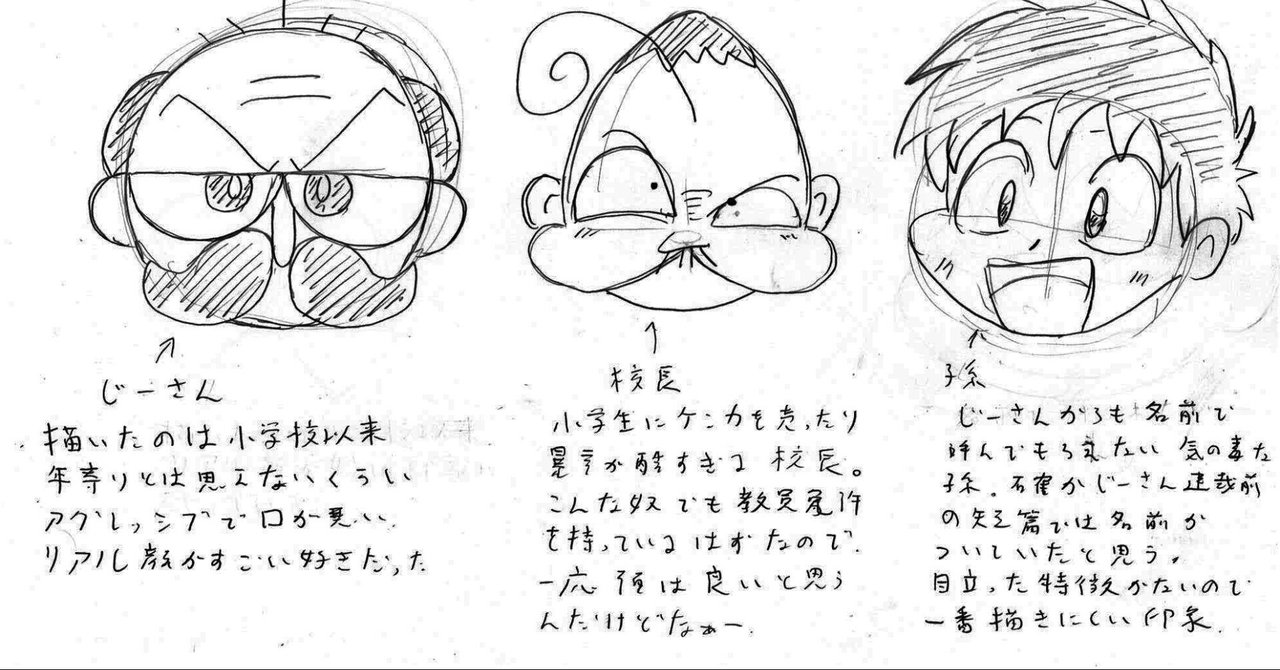 じーさん
描いたのは小学校以来
年寄りとは思えないくらい
アグレッシブで口が悪い.
リアル顔がすごい好きだった
校長
小学生にケンカを売ったり
暴言が酷すぎる校長。
こんな奴でも教員免許
を持っているはずなので.
一応頭は良いと思う
んだけどなぁー.
子孫
じーさんからも名前で
呼んでもらえない気の毒な
子孫.石確かじーさん連載前
の短篇では名前が
ついていたと思う。
目立った特徴がないので
一番描きにくい印象.